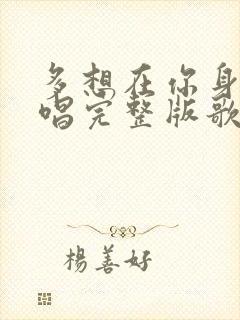 多想在你身
唱完整版歌
楊善好